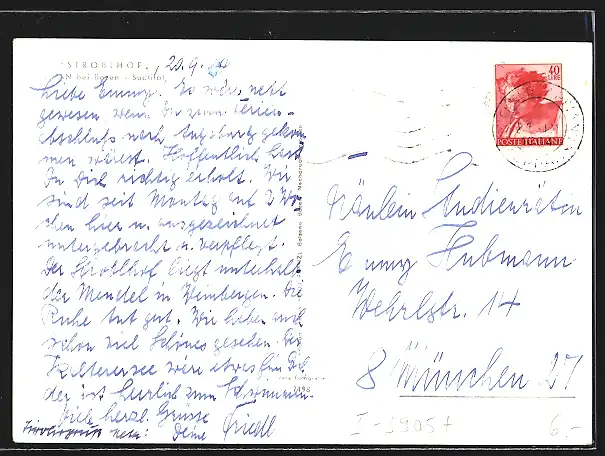 STROBLHOF, 20.9.
N bei Bozen - Südtirol
Liebe Emmy. Es wäre nett
gewesen wenn Du zum Ferien-
abschluss nach Augsburg gekom-
men wärest. Hoffentlich hast
Du Dich richtig erholt. Wir
sind seit Montag auf 2 Wo-
chen hier u. ausgezeichnet
untergebracht u. verpflegt.
Der Stroblhof liegt unterhalb
der Mendel in Weinbergen. Die
Ruhe tut gut. Wir haben auch
schon viel Schönes gesehen. Der
Kalterersee wäre etwas für Dich,
der ist herrlich zum Schwimmen.
Viele herzl. Grüsse
Deine Friedl
7198
40
LIRE
POSTE ITALIANE
Fräulein Studienrätin
Emmy Hubmann
Wehrlstr. 14
8 München 27
I-19057
6,-